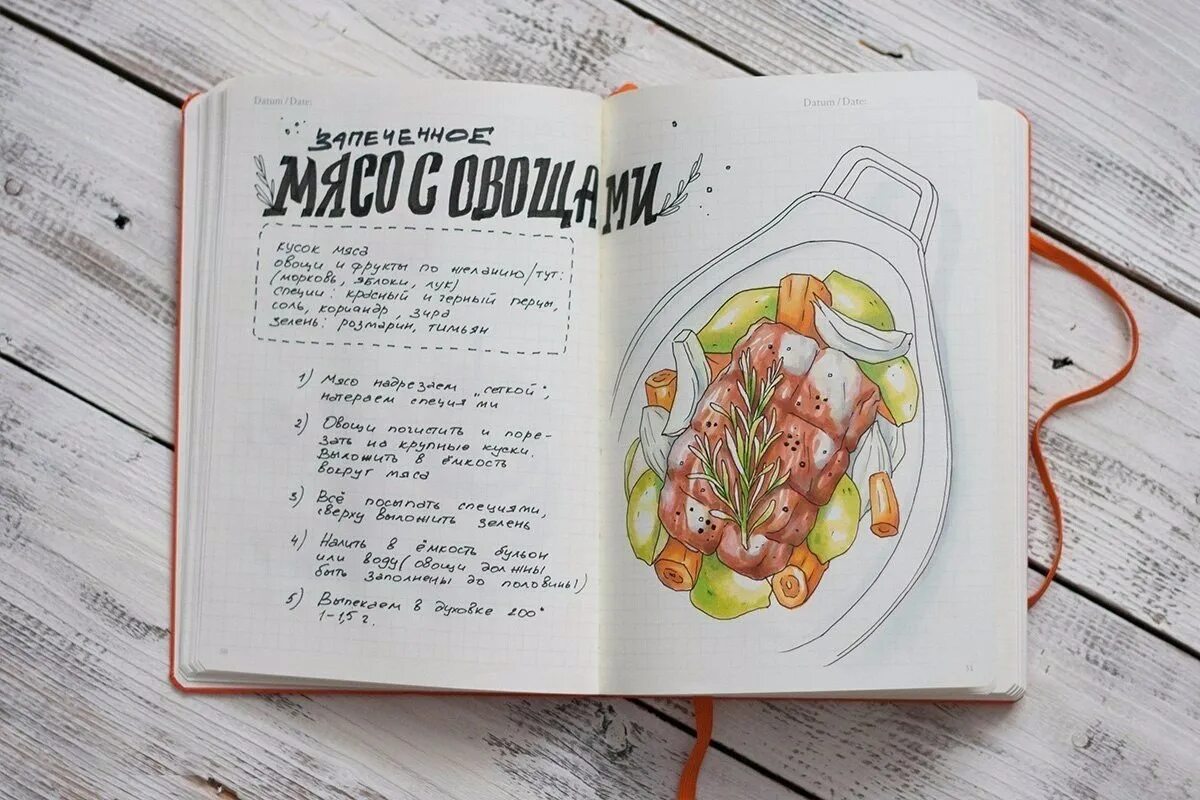 Datum / Date:
Datum / Date:
ЗАПЕЧЕННОЕ
МЯСО С ОВОЩАМИ
кусок мяса
овощи и фрукты по желанию/тут:
(морковь, яблоки, лук)
специи: красный и черный перцы,
соль, кориандр, зира
зелень: розмарин, тимьян
1) Мясо надрезаем „сеткой“,
натераем специями
2) Овощи почистить и поре-
зать на крупные куски.
Выложить в ёмкость
вокруг мяса
3) Всё посыпать специями,
сверху выложить зелень
4) Налить в ёмкость бульон
или воду (овощи должны
быть заполнены до половины!)
5) Выпекаем в духовке 200°
1-1,5 г.
50
51